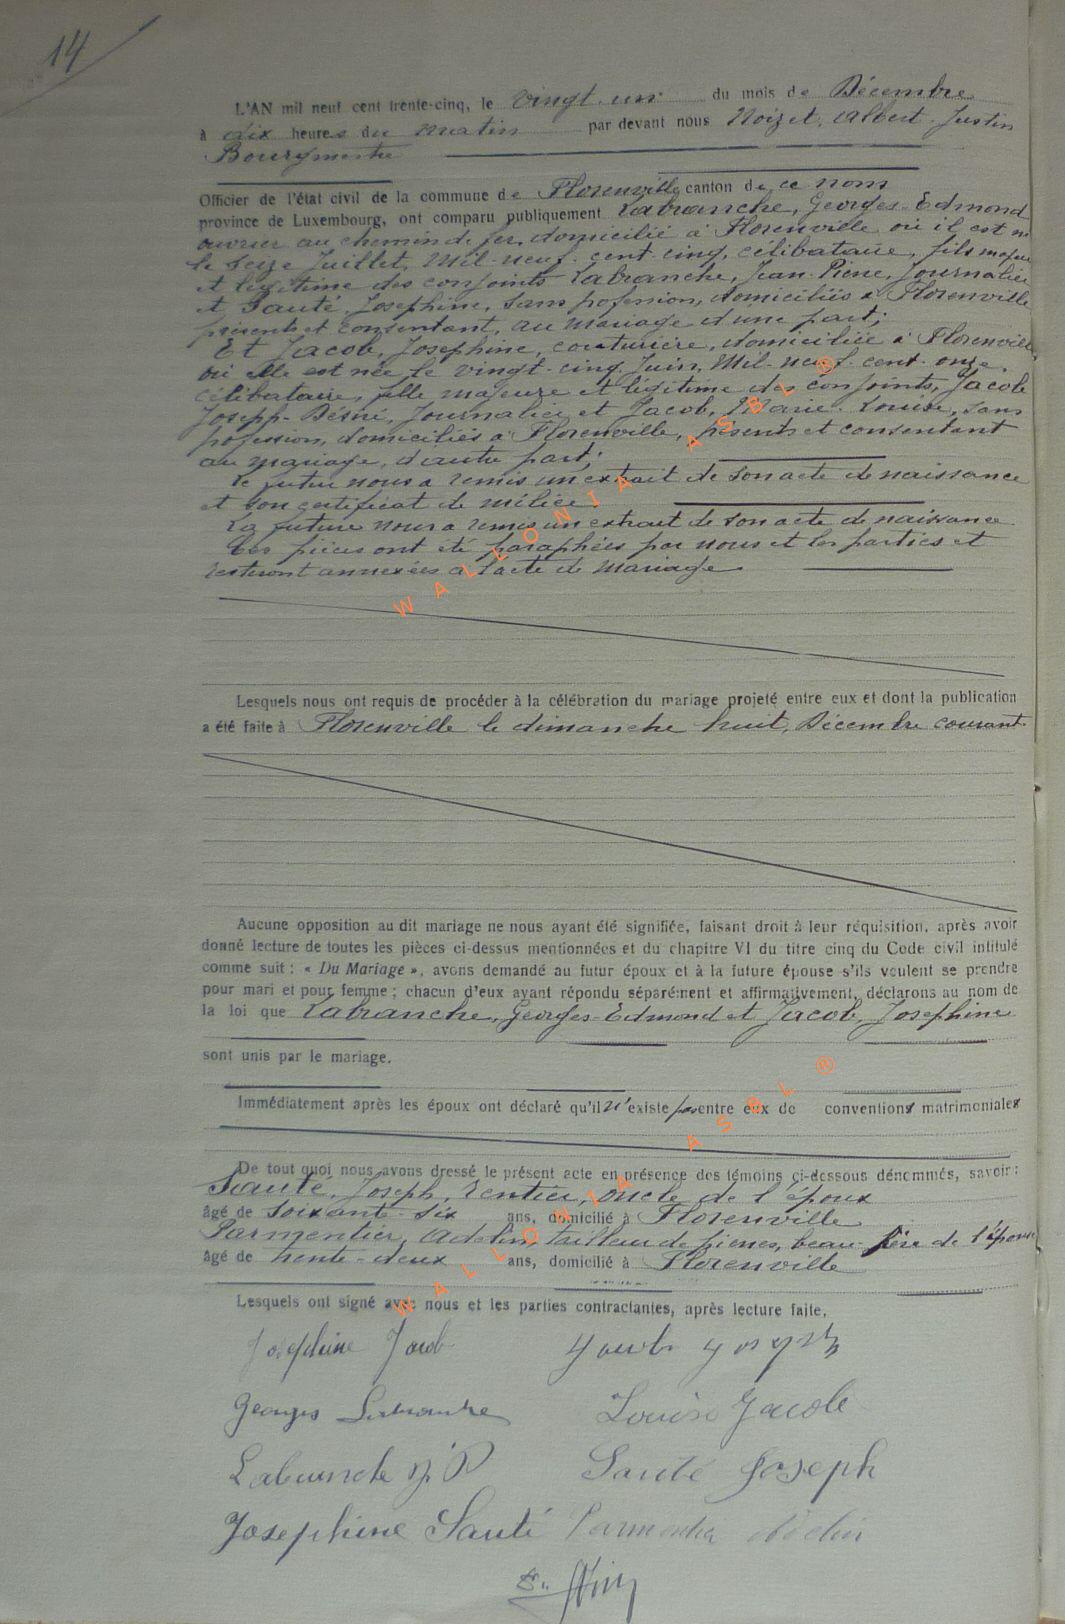 14
L'AN mil neuf cent trente-cinq, le vingt-un du mois de Décembre
à dix heures du matin par devant nous Noizet, Albert-Justin
Bourgmestre
Officier de l'état civil de la commune de Florenville canton de ce nom
province de Luxembourg, ont comparu publiquement Labranche, Georges-Edmond
ouvrier au chemin de fer, domicilié à Florenville où il est né
le seize Juillet, Mil-neuf-cent-cinq, célibataire, fils majeur
et légitime des conjoints Labranche, Jean-Pierre, Journalier
et Sauté, Josephine, sans profession, domiciliés à Florenville
présents et consentant, au mariage d'une part;
Et Jacob, Josephine, couturière, domiciliée à Florenville,
où elle est née le vingt-cinq Juin, Mil-neuf-cent-onze,
célibataire, fille majeure et légitime des conjoints, Jacob
Joseph-Désiré, Journalier et Jacob, Marie-Louise, sans
profession, domiciliés à Florenville, présents et consentant
au mariage, d'autre part;
Le futur nous a remis un extrait de son acte de naissance
et son certificat de milice
La future nous a remis un extrait de son acte de naissance
Ces pièces ont été paraphées par nous et les parties et
resteront annexées à l'acte de mariage
Lesquels nous ont requis de procéder à la célébration du mariage projeté entre eux et dont la publication
a été faite à Florenville le dimanche huit, Décembre courant
Aucune opposition au dit mariage ne nous ayant été signifiée, faisant droit à leur réquisition, après avoir
donné lecture de toutes les pièces ci-dessus mentionnées et du chapitre VI du titre cinq du Code civil intitulé
comme suit : « Du Mariage », avons demandé au futur époux et à la future épouse s'ils veulent se prendre
pour mari et pour femme ; chacun d'eux ayant répondu séparément et affirmativement, déclarons au nom de
la loi que Labranche, Georges-Edmond et Jacob, Josephine
sont unis par le mariage.
Immédiatement après les époux ont déclaré qu'il n'existe pas entre eux de conventions matrimoniales
De tout quoi nous avons dressé le présent acte en présence des témoins ci-dessous dénommés, savoir :
Sauté, Joseph, rentier, oncle de l'époux
âgé de soixante-six ans, domicilié à Florenville
Parmentier, Adelin, tailleur de pierres, beau-frère de l'épouse
âgé de trente-deux ans, domicilié à Florenville
Lesquels ont signé avec nous et les parties contractantes, après lecture faite.
Josephine Jacob Jacob Joseph
Georges Labranche Louise Jacob
Labranche J.P Sauté Joseph
Josephine Sauté Parmentier Adelin
WALLONIA ASBL ®
WALLONIA ASBL ®